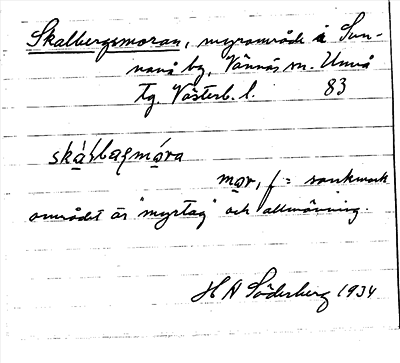 Skalbergsmoran, myrområde å Sun-
nanå by, Vännäs sn. Umeå
tg. Västerb. l. 83
skálbaƫmóra
mor, f = sankmark
området är "myrtag" och allmänning.
H A Söderberg 1934